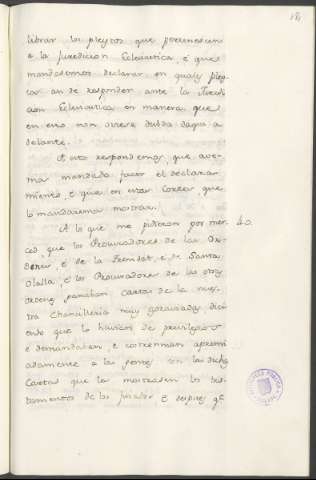 18
librar los pleytos que pertenescen
a la Juredicion Eclesiastica, é que
mandasemos declarar, en quales pley
tos an de responder ante la Juredi
cion Eclesiastica en manera que
en esto non oviere dubda daqui a
delante.
A esto respondemos, que ave
mos mandado facer el declara
miento, é que en estas Cortes que
lo mandaremos mostrar.
A lo que me pidieron por mer 40.
ced, que los Procuradores de las Or
denes, é de la Trenidat, é de Santa
Olalla, é los Procuradores de las otras
ordenes, ganaban cartas de la nues
tra Chancilleria muy agraviadas, dici
endo que lo havian de previlegio
é demandaban, é costrennian apremi
adamente a las gentes con las dichas
Cartas que les mostrasen los tes
tamentos de los finados, é despues que